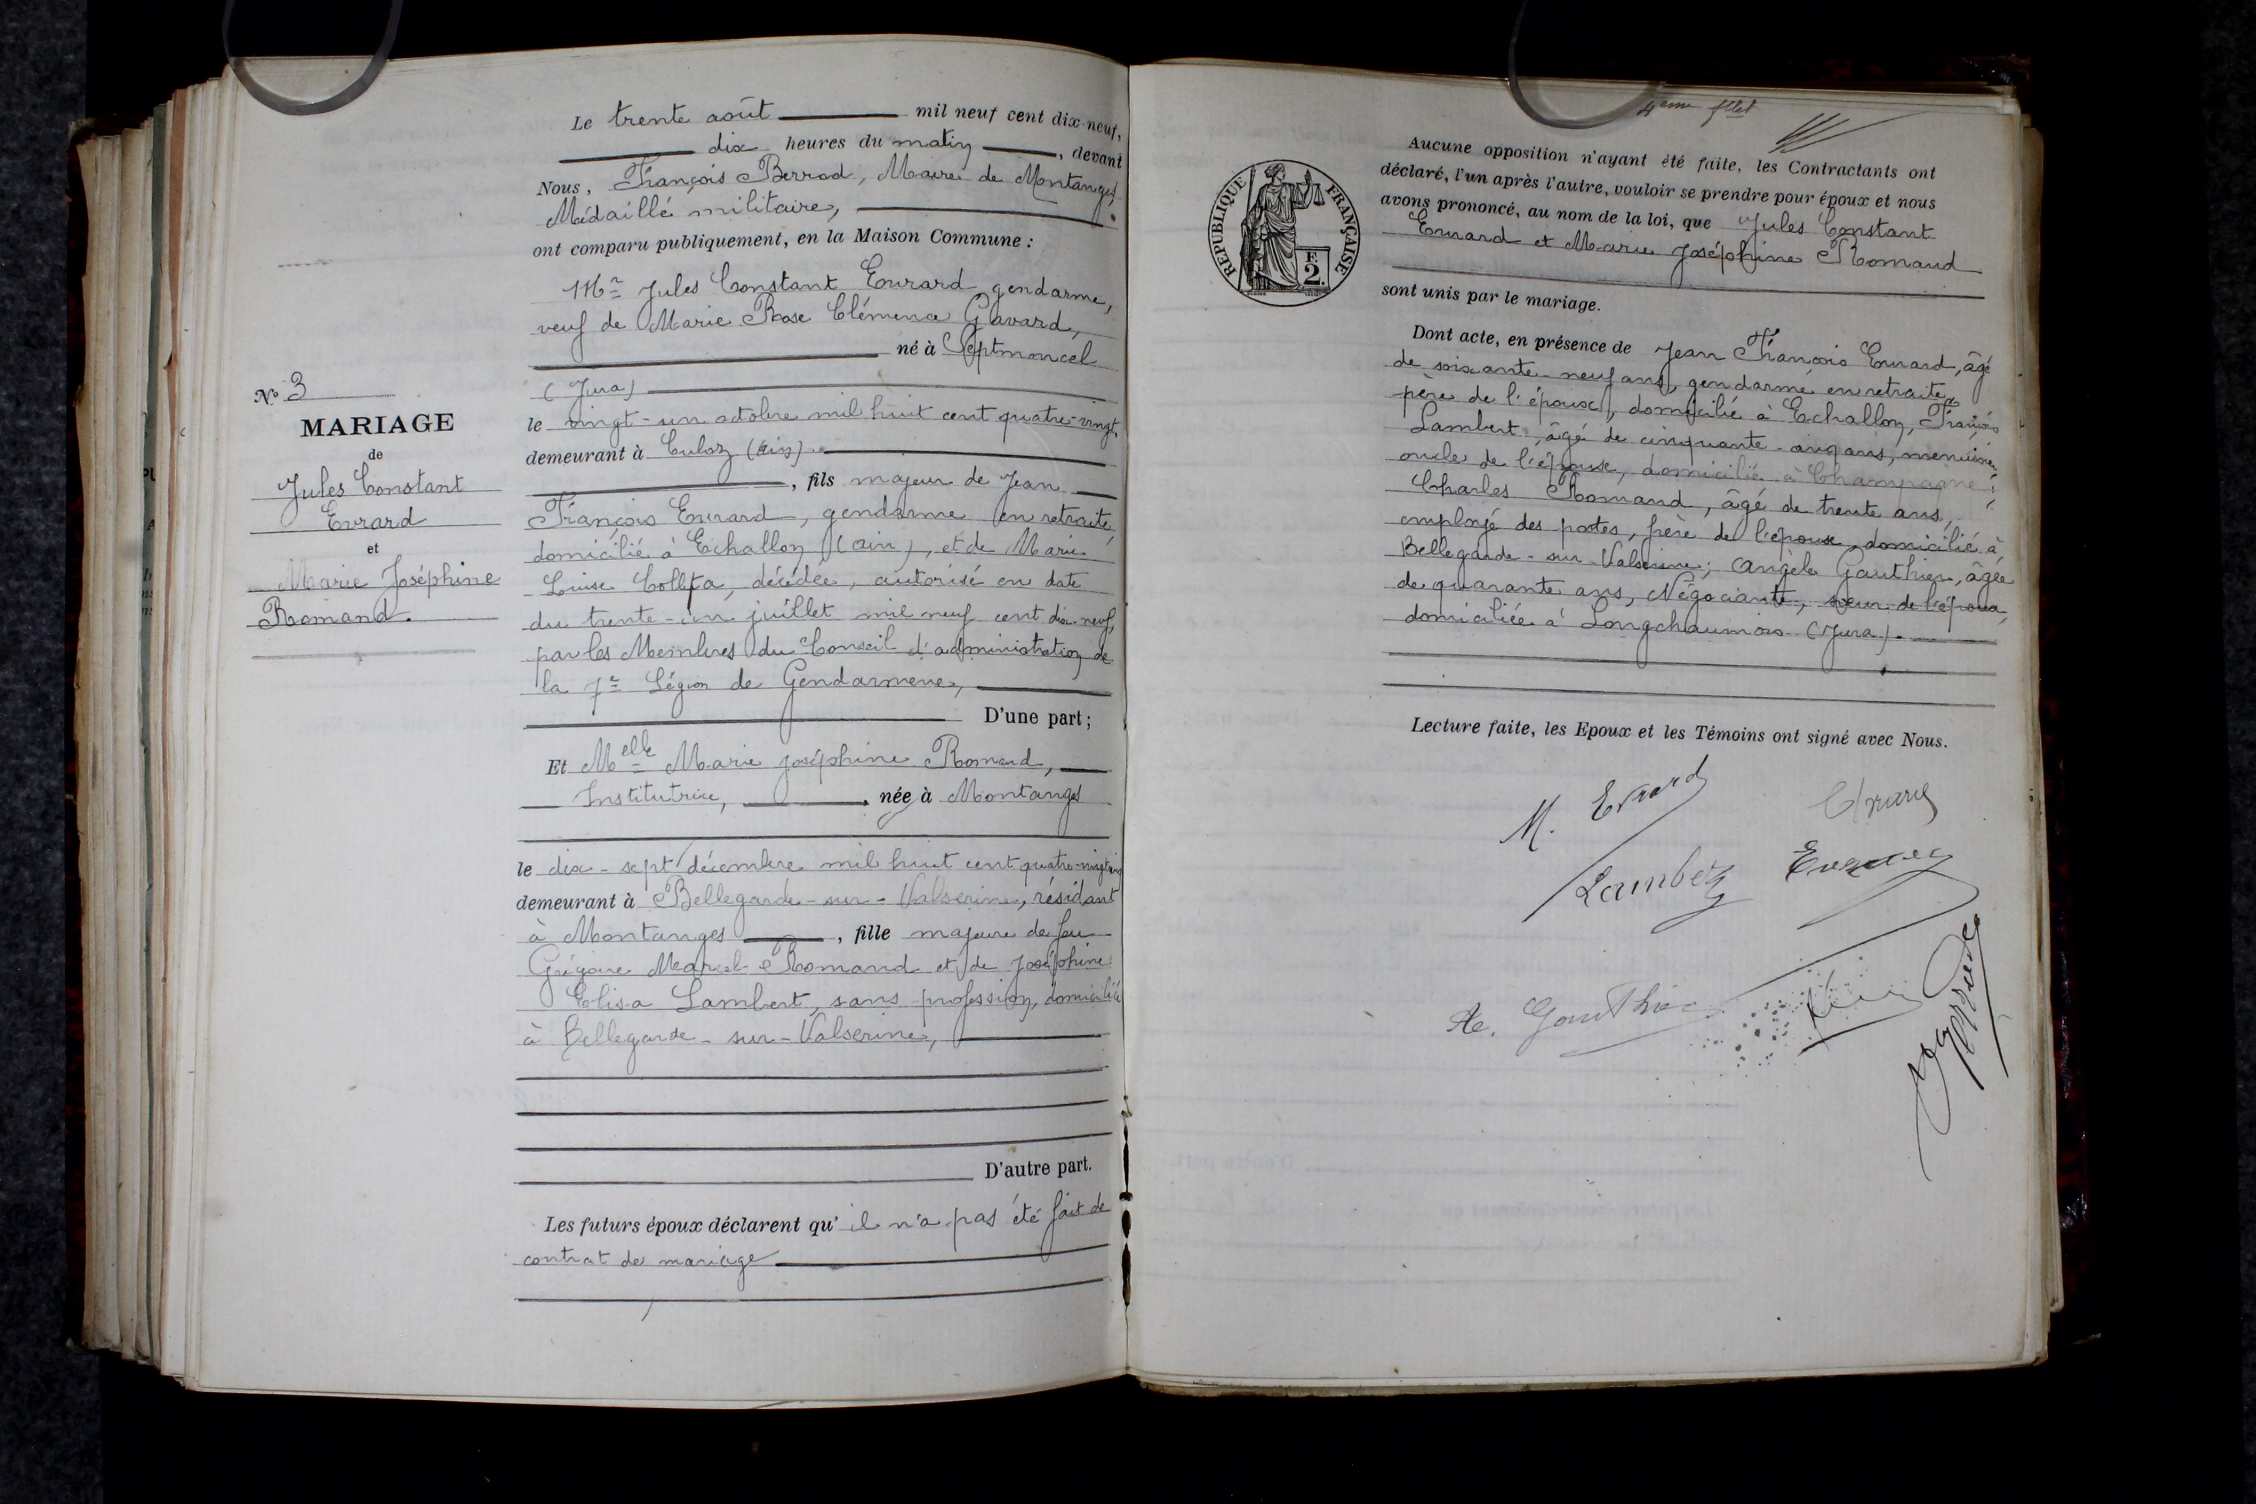 N° 3
MARIAGE
de
Jules Constant
Evrard
et
Marie Joséphine
Romand.
Le trente août mil neuf cent dix-neuf,
dix heures du matin, devant
Nous, François Berrod, Maire de Montanges
Médaillé militaire,
ont comparu publiquement, en la Maison Commune :
Mr Jules Constant Evrard gendarme,
veuf de Marie Rose Clémence Gavard,
né à Septmoncel
(Jura)
le vingt-un octobre mil huit cent quatre-vingt,
demeurant à Culoz (Ain).
, fils majeur de Jean
François Evrard, gendarme en retraite,
domicilié à Echallon (Ain), et de Marie
Louise décédée, autorisé en date
du trente-un juillet mil neuf cent dix neuf,
par les Membres du Conseil d'administration de
la 7e Légion de Gendarmerie,
D'une part ;
Et Melle Marie Joséphine Romand,
Institutrice, née à Montanges
le dix-sept décembre mil huit cent quatre-vingt
demeurant à Bellegarde-sur-Valserine, résidant
à Montanges, fille majeure de feu
Grégoire Marcel Romand et de Joséphine
Elisa Lambert, sans profession, domiciliée
à Bellegarde-sur-Valserine,
D'autre part.
Les futurs époux déclarent qu' il n'a pas été fait de
contrat de mariage
4ème fllet
RÉPUBLIQUE FRANÇAISE
F.
2.
Aucune opposition n'ayant été faite, les Contractants ont
déclaré, l'un après l'autre, vouloir se prendre pour époux et nous
avons prononcé, au nom de la loi, que Jules Constant
Evrard et Marie Joséphine Romand
sont unis par le mariage.
Dont acte, en présence de Jean François Evrard, âgé
de soixante-neuf ans, gendarme en retraite,
père de l'époux, domicilié à Echallon, François
Lambert, âgé de cinquante-cinq ans, menuisier,
oncle de l'épouse, domicilié à Champagne ;
Charles Romand, âgé de trente ans,
employé des postes, frère de l'épouse, domicilié à
Bellegarde-sur-Valserine ; Angèle Gauthier, âgée
de quarante ans, Négociante, sœur de l'époux,
domiciliée à Longchaumois (Jura).
Lecture faite, les Epoux et les Témoins ont signé avec Nous.
M. Evrard
Evrard
Lambert
A. Gauthier